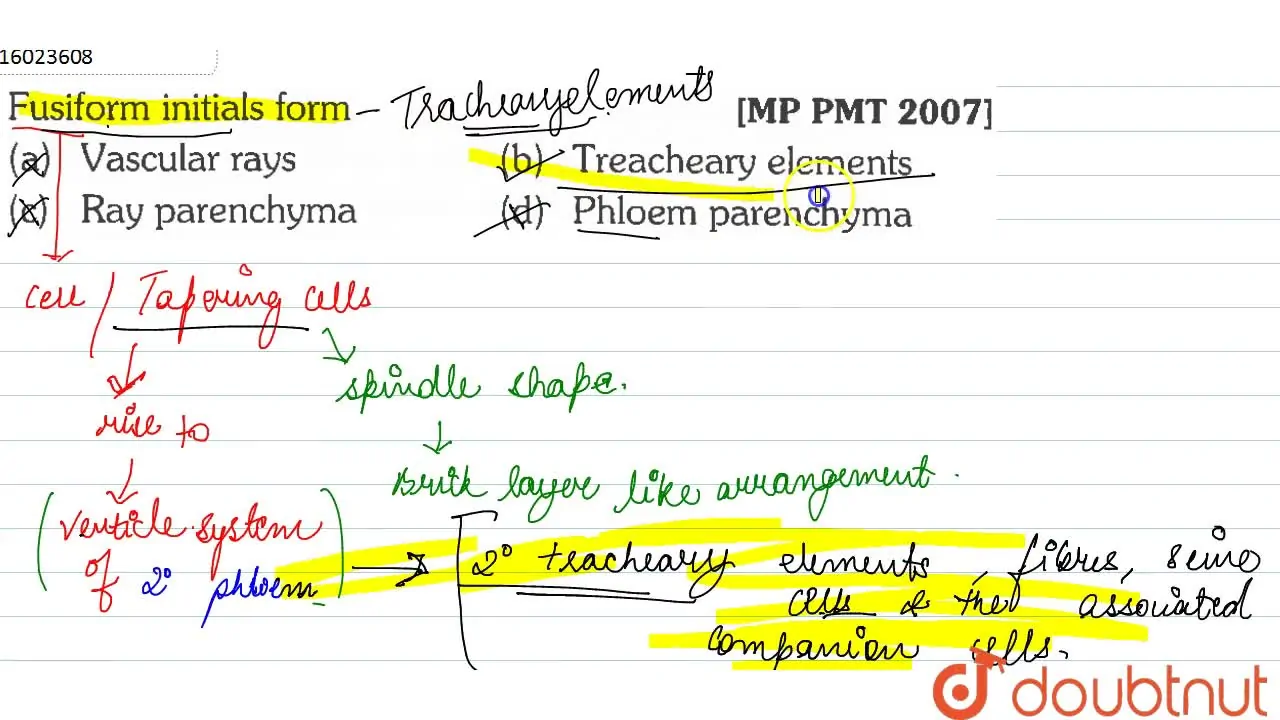 16023608
Fusiform initials form – Trachearyelements [MP PMT 2007]
(a) Vascular rays (b) Treacheary elements
(c) Ray parenchyma (d) Phloem parenchyma
cell / Tapering cells
spindle shape.
rise to
Brick layer like arrangement.
(verticle system
of 2° phloem) → [2° tracheary elements, fibres, seive
cells & the associated
companion cells.
doubtnut